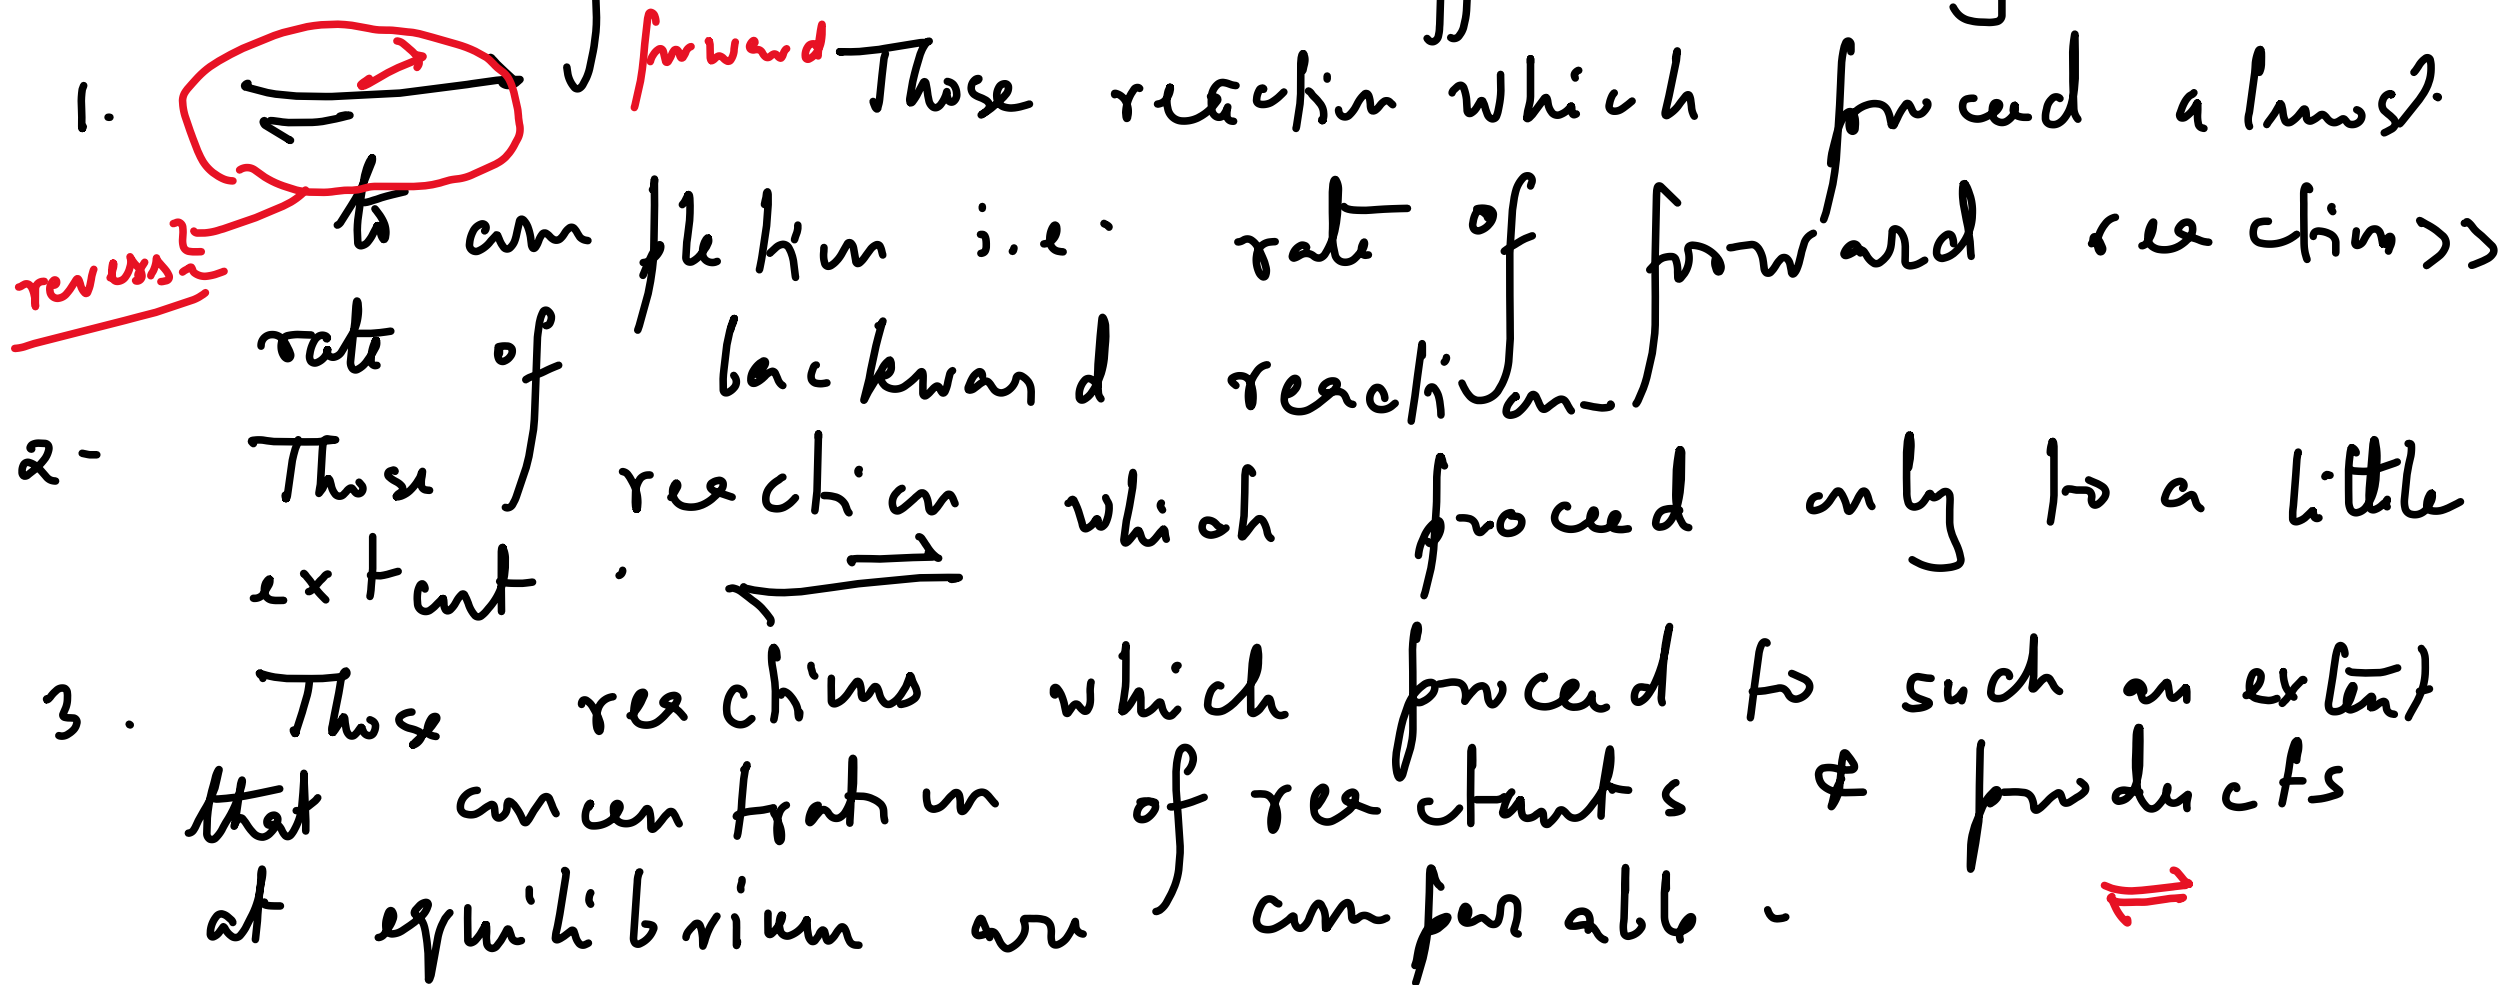 forward
1. ⇌ Those reactions which proceed a
reverse
after completely i.e rate of forward reaction >>
rate of backward reaction.
2- Those reactions when proceed only to a little
extent. ⇌
3. Those reactions which proceed to such an extent,
that concentration of reactants & products
at equilibrium are comparable. ⇌